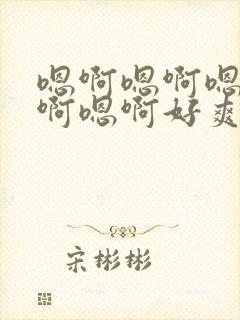 嗯啊嗯啊嗯
啊嗯啊好爽
宋彬彬